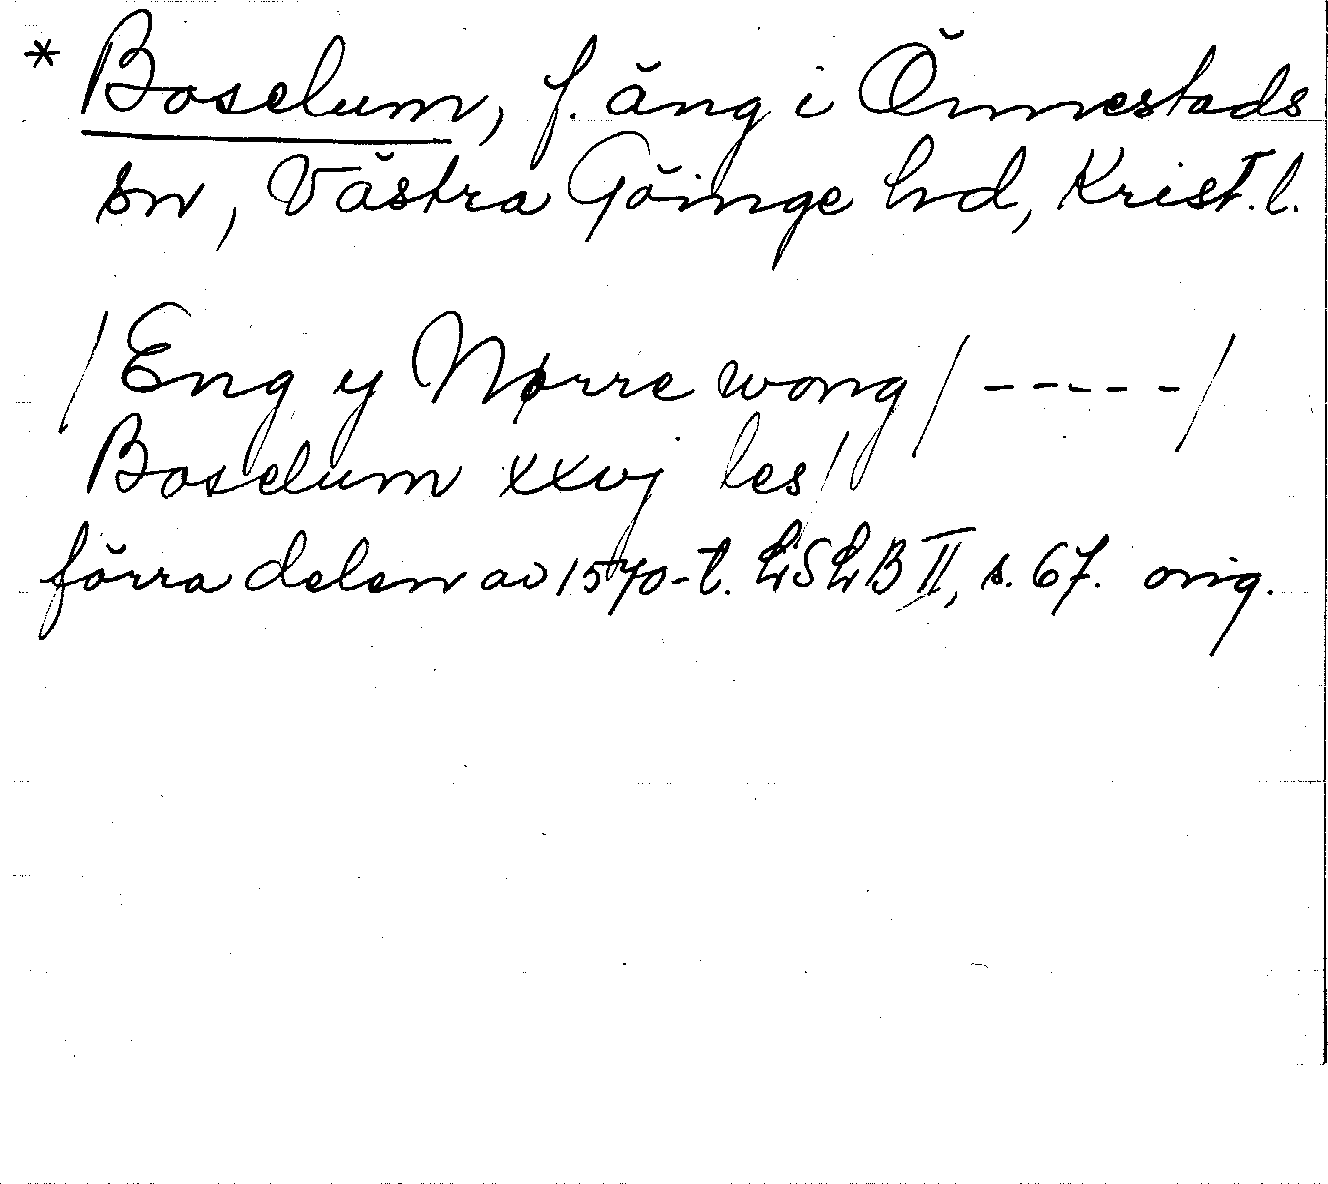 * Boselum, f. äng i Önnestads
sn, Västra Göinge hd, Krist. l.
/Eng y Nørre wong/-----/
Boselum xxvj les/
förra delen av 1570-t. LSLB II, s. 67. orig.